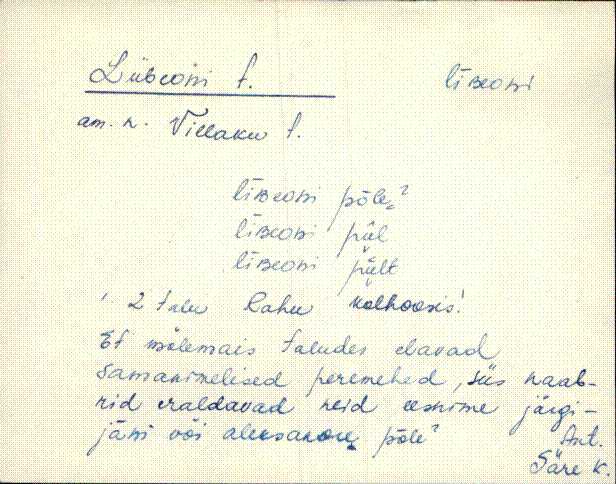 Liibeoni t. liʙeoni
am. n. Villaku t.
liʙeoni põleˀ
liʙeoni piäl
liʙeoni piält
' 2 talu Rahu kolhoosis!
Et mõlemais taludes elavad
samanimelised peremehed, siis naab-
rid eraldavad neid eesnime järgi –
jäńi või aleksandre põleˀ
Ant.
Säre k.